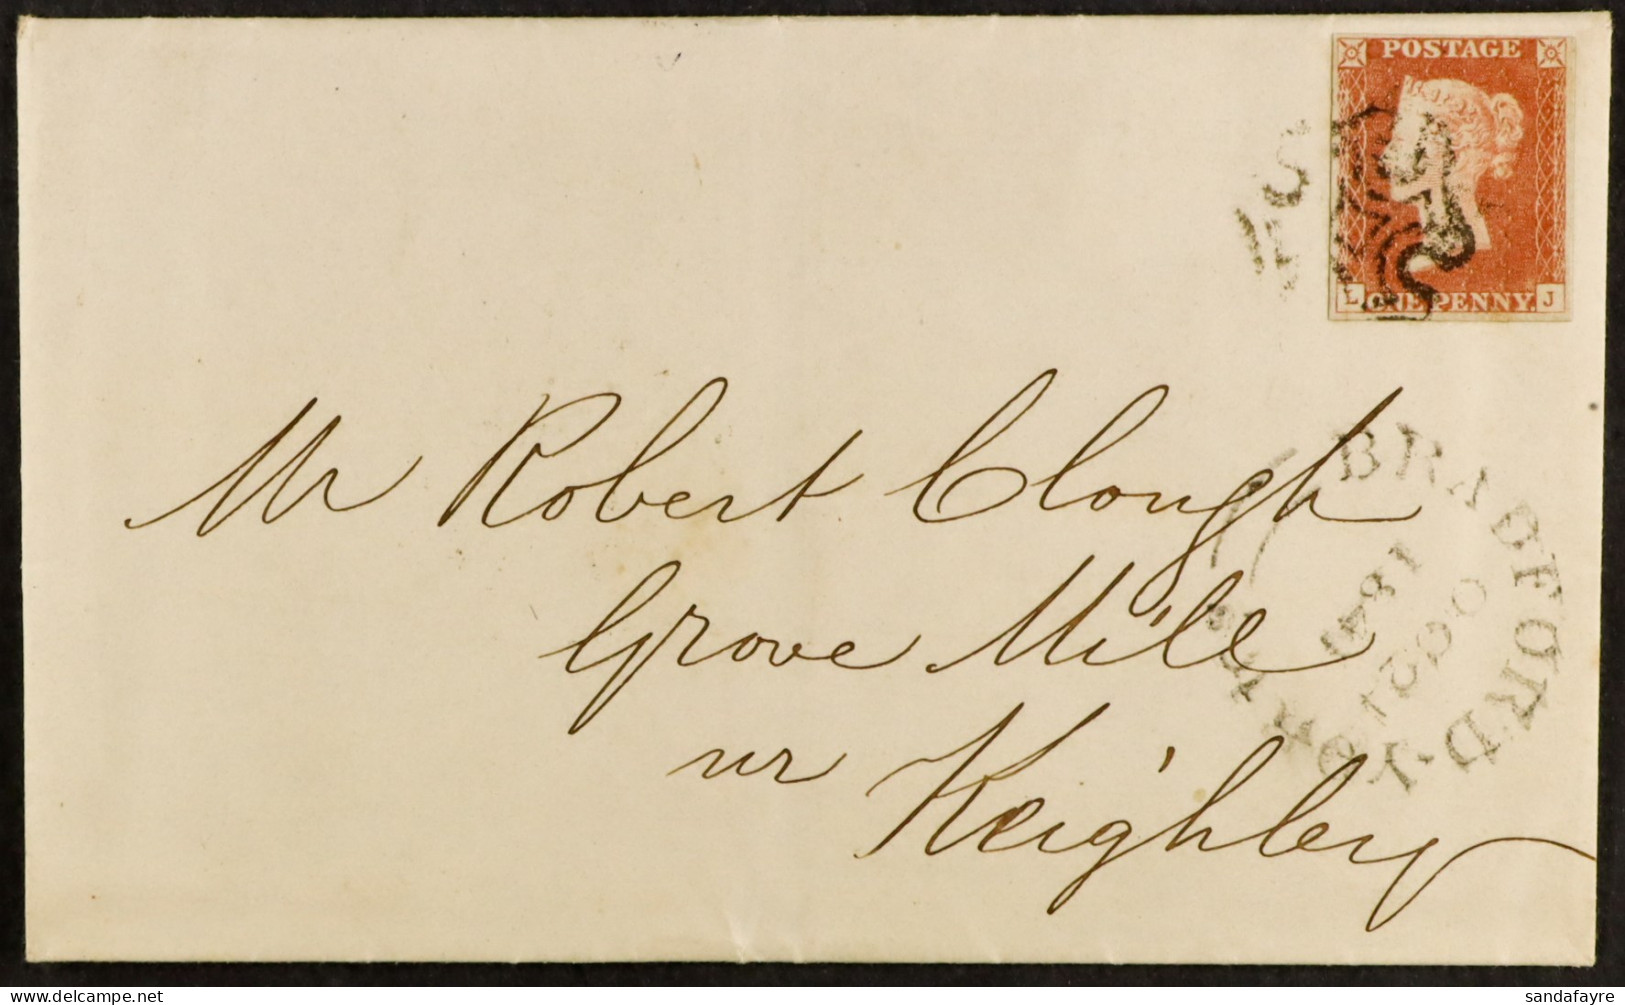 POSTAGE
L ONE PENNY. J
Mr Robert Clough
Grove Mill
nr Keighley
BRADFORD·YORKS
OC 21
184
sandafayre